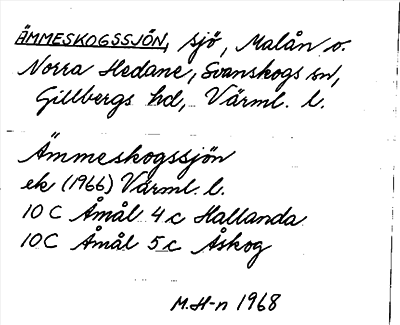 ÄMMESKOGSSJÖN, sjö, Malån o.
Norra Hedane, Svanskogs sn,
Gillbergs hd, Värml. l.
Ämmeskogssjön
ek (1966) Värml. l.
10 C Åmål 4 c Hallanda
10 C Åmål 5 c Åskog
M.H-n 1968